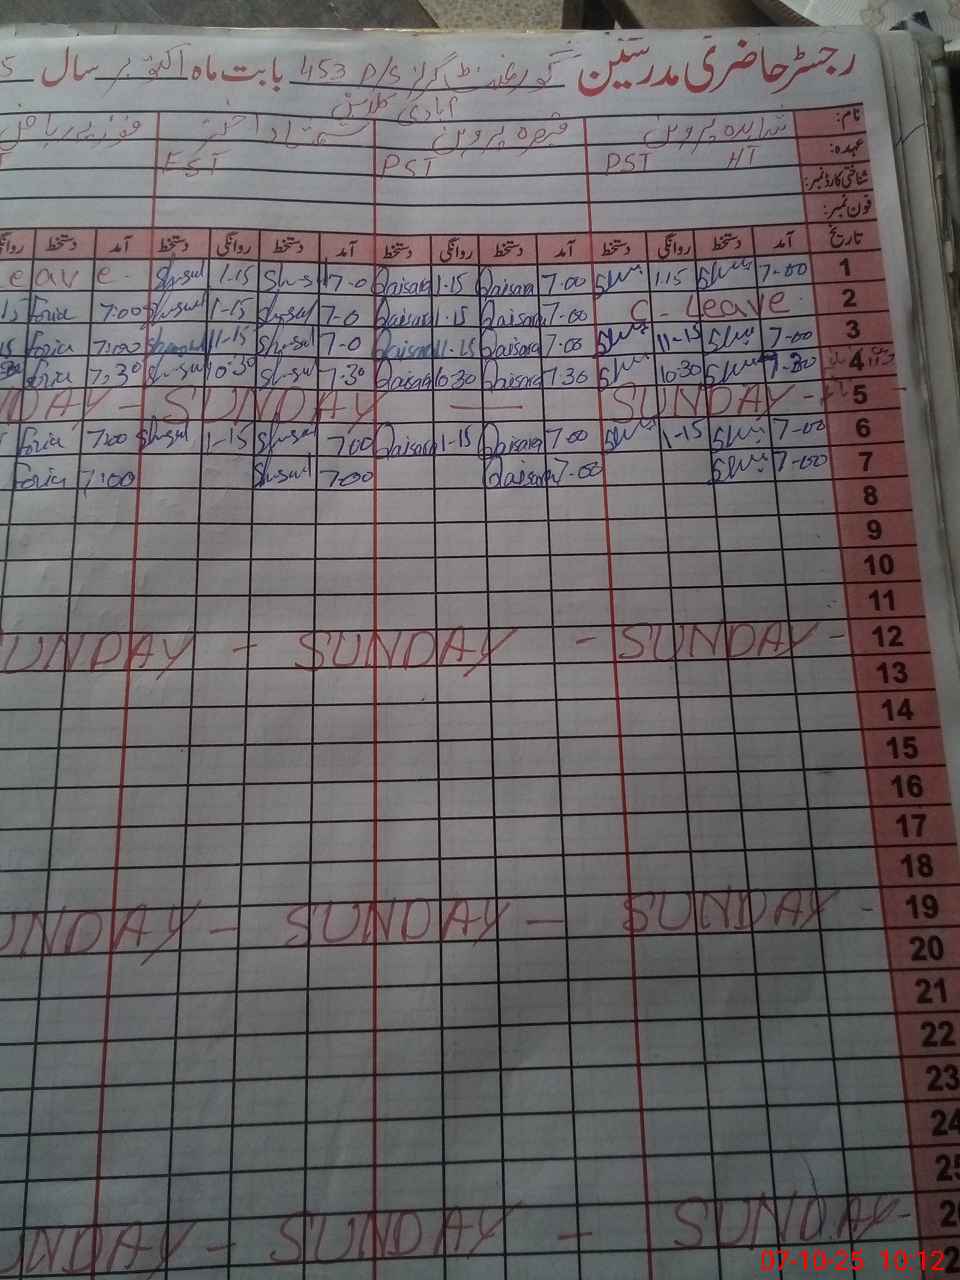 رجسٹر حاضری مدرسین گورنمنٹ گرلز P/S 453 بابت ماہ اکتوبر سال
آبادی
نام: شاہدہ پروین قیصرہ پروین اختر فوزیہ ریاض
عہدہ: PST HT PST EST
شناختی کارڈ نمبر:
فون نمبر:
تاریخ آمد دستخط روانگی دستخط آمد دستخط روانگی دستخط آمد دستخط روانگی دستخط آمد دستخط روانگی
1 7-00 1.15 7-00 Qaisara 1-15 Qaisara 7-0 1-15 eave
2 C-Leave 7-00 Qaisara 1.15 Qaisara 7-0 1-15 7:00 Fozia
3 7-00 11-15 7-00 Qaisara 11-15 Qaisara 7-0 11-15 7:00 Fozia
4 7-30 10-30 7.30 Qaisara 10.30 Qaisara 7.30 10:30 7:30 Fozia
5 SUNDAY - SUNDAY - NDAY
6 7-00 1-15 7-00 Qaisara 1-15 Qaisara 700 1-15 7:00 Fozia
7 7-00 7-00 Qaisara 7-00 7:00 Fozia
8
9
10
11
12 - SUNDAY - SUNDAY - UNDAY
13
14
15
16
17
18
19 - SUNDAY - SUNDAY - UNDAY
20
21
22
23
24
25
SUNDAY - SUNDAY - UNDAY
07-10-25 10:12